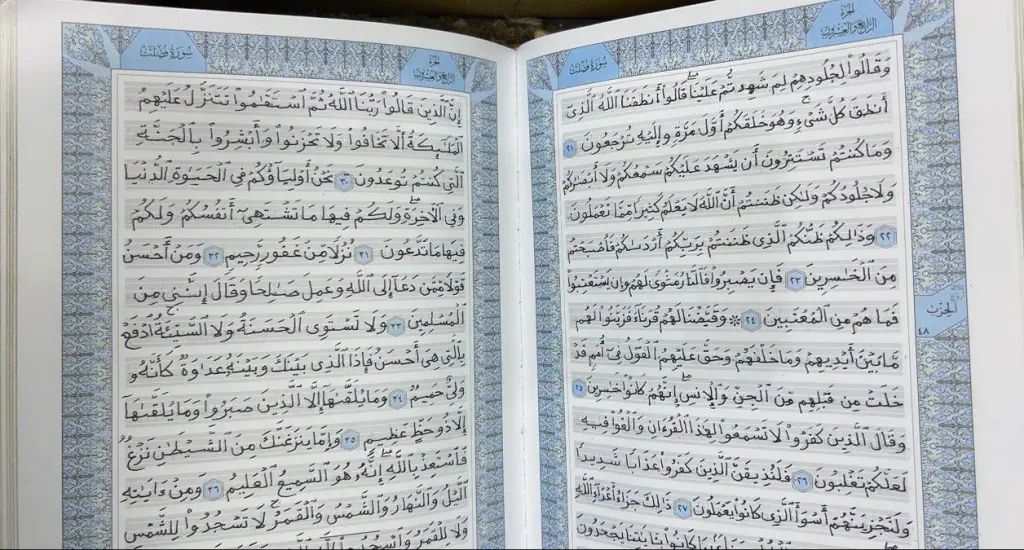 سورة فصلت
الجزء الرابع والعشرون
وَقَالُوا۟ لِجُلُودِهِمْ لِمَ شَهِدتُّمْ عَلَيْنَا ۖ قَالُوٓا۟ أَنطَقَنَا ٱللَّهُ ٱلَّذِىٓ
أَنطَقَ كُلَّ شَىْءٍ ۚ وَهُوَ خَلَقَكُمْ أَوَّلَ مَرَّةٍ وَإِلَيْهِ تُرْجَعُونَ ٢١
وَمَا كُنتُمْ تَسْتَتِرُونَ أَن يَشْهَدَ عَلَيْكُمْ سَمْعُكُمْ وَلَآ أَبْصَـٰرُكُمْ
وَلَا جُلُودُكُمْ وَلَـٰكِن ظَنَنتُمْ أَنَّ ٱللَّهَ لَا يَعْلَمُ كَثِيرًا مِّمَّا تَعْمَلُونَ
٢٢ وَذَٰلِكُمْ ظَنُّكُمُ ٱلَّذِى ظَنَنتُم بِرَبِّكُمْ أَرْدَىٰكُمْ فَأَصْبَحْتُم
مِّنَ ٱلْخَـٰسِرِينَ ٢٣ فَإِن يَصْبِرُوا۟ فَٱلنَّارُ مَثْوًى لَّهُمْ ۖ وَإِن يَسْتَعْتِبُوا۟
فَمَا هُم مِّنَ ٱلْمُعْتَبِينَ ٢٤ ۞ وَقَيَّضْنَا لَهُمْ قُرَنَآءَ فَزَيَّنُوا۟ لَهُم
مَّا بَيْنَ أَيْدِيهِمْ وَمَا خَلْفَهُمْ وَحَقَّ عَلَيْهِمُ ٱلْقَوْلُ فِىٓ أُمَمٍ قَدْ
خَلَتْ مِن قَبْلِهِم مِّنَ ٱلْجِنِّ وَٱلْإِنسِ ۖ إِنَّهُمْ كَانُوا۟ خَـٰسِرِينَ ٢٥
وَقَالَ ٱلَّذِينَ كَفَرُوا۟ لَا تَسْمَعُوا۟ لِهَـٰذَا ٱلْقُرْءَانِ وَٱلْغَوْا۟ فِيهِ
لَعَلَّكُمْ تَغْلِبُونَ ٢٦ فَلَنُذِيقَنَّ ٱلَّذِينَ كَفَرُوا۟ عَذَابًا شَدِيدًا
وَلَنَجْزِيَنَّهُمْ أَسْوَأَ ٱلَّذِى كَانُوا۟ يَعْمَلُونَ ٢٧ ذَٰلِكَ جَزَآءُ أَعْدَآءِ ٱللَّهِ
جَزَآءًۢ بِمَا كَانُوا۟ بِـَٔايَـٰتِنَا يَجْحَدُونَ
الحزب
٤٨
سورة فصلت
الجزء الرابع والعشرون
إِنَّ ٱلَّذِينَ قَالُوا۟ رَبُّنَا ٱللَّهُ ثُمَّ ٱسْتَقَـٰمُوا۟ تَتَنَزَّلُ عَلَيْهِمُ
ٱلْمَلَـٰٓئِكَةُ أَلَّا تَخَافُوا۟ وَلَا تَحْزَنُوا۟ وَأَبْشِرُوا۟ بِٱلْجَنَّةِ
ٱلَّتِى كُنتُمْ تُوعَدُونَ ٣٠ نَحْنُ أَوْلِيَآؤُكُمْ فِى ٱلْحَيَوٰةِ ٱلدُّنْيَا
وَفِى ٱلْـَٔاخِرَةِ ۖ وَلَكُمْ فِيهَا مَا تَشْتَهِىٓ أَنفُسُكُمْ وَلَكُمْ
فِيهَا مَا تَدَّعُونَ ٣١ نُزُلًا مِّنْ غَفُورٍ رَّحِيمٍ ٣٢ وَمَنْ أَحْسَنُ
قَوْلًا مِّمَّن دَعَآ إِلَى ٱللَّهِ وَعَمِلَ صَـٰلِحًا وَقَالَ إِنَّنِى مِنَ
ٱلْمُسْلِمِينَ ٣٣ وَلَا تَسْتَوِى ٱلْحَسَنَةُ وَلَا ٱلسَّيِّئَةُ ۚ ٱدْفَعْ
بِٱلَّتِى هِىَ أَحْسَنُ فَإِذَا ٱلَّذِى بَيْنَكَ وَبَيْنَهُۥ عَدَٰوَةٌ كَأَنَّهُۥ
وَلِىٌّ حَمِيمٌ ٣٤ وَمَا يُلَقَّىٰهَآ إِلَّا ٱلَّذِينَ صَبَرُوا۟ وَمَا يُلَقَّىٰهَآ
إِلَّا ذُو حَظٍّ عَظِيمٍ ٣٥ وَإِمَّا يَنزَغَنَّكَ مِنَ ٱلشَّيْطَـٰنِ نَزْغٌ
فَٱسْتَعِذْ بِٱللَّهِ ۖ إِنَّهُۥ هُوَ ٱلسَّمِيعُ ٱلْعَلِيمُ ٣٦ وَمِنْ ءَايَـٰتِهِ
ٱلَّيْلُ وَٱلنَّهَارُ وَٱلشَّمْسُ وَٱلْقَمَرُ ۚ لَا تَسْجُدُوا۟ لِلشَّمْسِ
وَلَا لِلْقَمَرِ وَٱسْجُدُوا۟ لِلَّهِ